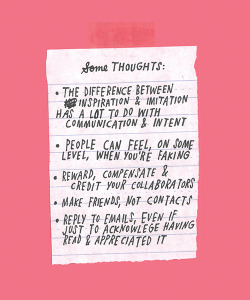 Some THOUGHTS:
• THE DIFFERENCE BETWEEN
INSPIRATION & IMITATION
HAS A LOT TO DO WITH
COMMUNICATION & INTENT
• PEOPLE CAN FEEL, ON SOME
LEVEL, WHEN YOU'RE FAKING
• REWARD, COMPENSATE &
CREDIT YOUR COLLABORATORS
• MAKE FRIENDS, NOT CONTACTS
• REPLY TO EMAILS, EVEN IF
JUST TO ACKNOWLEGE HAVING
READ & APPRECIATED IT